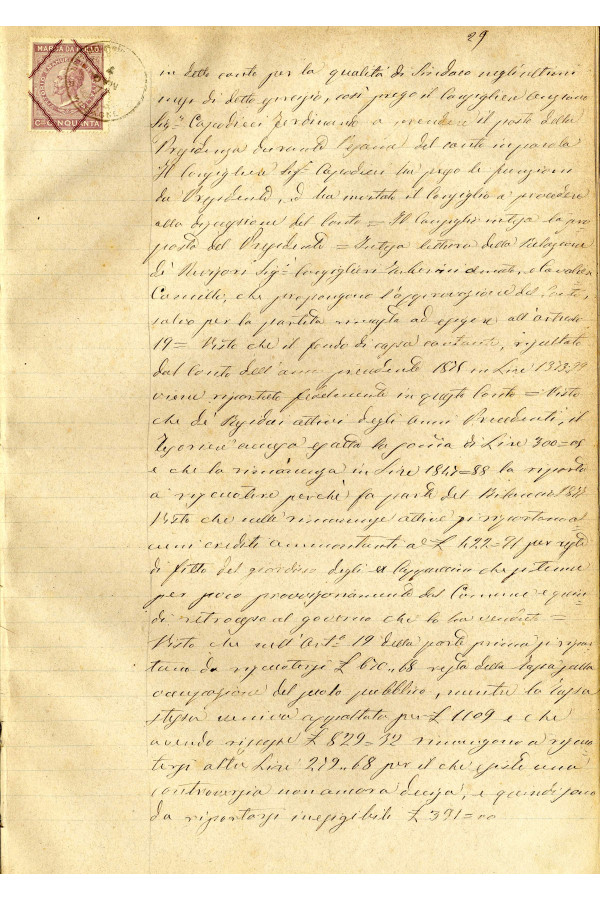 29
MARCA DA BOLLO
C. CINQUANTA
in detto conto per la qualità di Sindaco negli ultimi
mesi di detto esercizio, così prega il Consigliere anziano
Sig.r Capodieci Ferdinando a prendere il posto della
Presidenza durante l'esame del conto in parola
Il Consigliere Sig.r Capodieci ha preso le funzioni
da Presidente, ed ha invitato il Consiglio a procedere
alla discussione del Conto = Il Consiglio intesa la pro
posta del Presidente = Intesa lettura della Relazione
di Revisori Sig.i Consiglieri e Cavaliere
Camillo, che propongono l'approvazione del Conto,
salvo per la partita rimasta ad esigere all'articolo
19 = Visto che il fondo di cassa contante, risultato
dal Conto dell'anno precedente in Lire
viene riportato fedelmente in questo Conto = Visto
che dei Residui attivi degli anni Precedenti, il
Tesoriere accusa esatta la somma di Lire 300=08
e che la rimanenza in Lire 1847=88 la riporta
a riscuotere perchè fa parte del Bilancio
Visto che nelle rimanenze attive si riportano al
cuni crediti ammontanti a £ 422=91 per resto
di fitto del giardino degli ex Cappuccini che si tenne
per poco provvisoriamente dal Comune e quin
di retrocesso al governo che lo ha venduto =
Visto che nell'Art.o 19 della parte prima si ripor
tano da riscuotersi £ 670..68 resto della tassa sulla
occupazione del suolo pubblico, mentre la tassa
stessa veniva appaltata per £ 1109 e che
avendo riscosse £ 829=32 rimangono a riscuo
tersi altre Lire 279..68 per il che esiste una
controversia non ancora decisa, e quindi sono
da riportarsi inesigibili £ 391=00